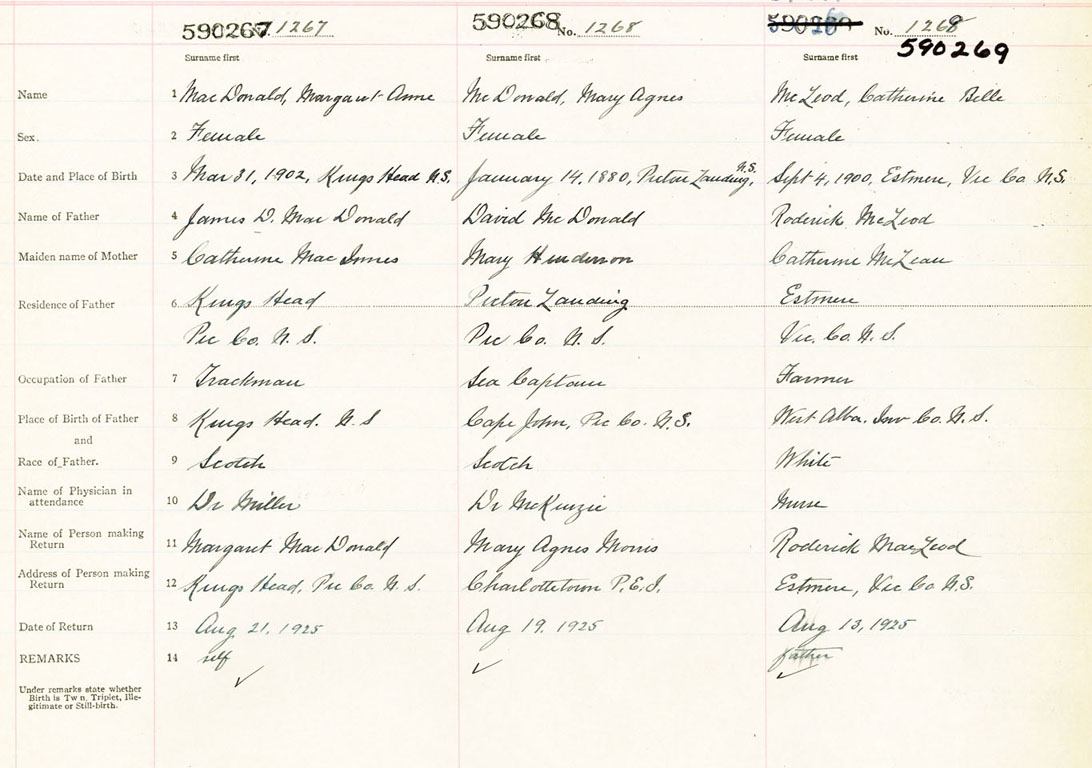 590267 No. 1267 590268 No. 1268 No. 1268
590269
Surname first Surname first Surname first
Name 1 Mac Donald, Margaret Anne Mc Donald, Mary Agnes McLeod, Catherine Belle
Sex. 2 Female Female Female
Date and Place of Birth 3 Mar 31, 1902, Kings Head N.S. January 14, 1880, Pictou Landing, N.S. Sept 4, 1900, Estmere, Vic Co N.S.
Name of Father 4 James D. Mac Donald David Mc Donald Roderick McLeod
Maiden name of Mother 5 Catherine Mac Innes Mary Henderson Catherine McLean
Residence of Father 6 Kings Head Pictou Landing Estmere
Pic Co. N. S. Pic Co. N. S. Vic. Co. N. S.
Occupation of Father 7 Trackman Sea Captain Farmer
Place of Birth of Father 8 Kings Head. N. S Cape John, Pic Co. N.S. West Alba. Inv Co. N. S.
and
Race of Father. 9 Scotch Scotch White
Name of Physician in attendance 10 Dr Miller Dr McKenzie Nurse
Name of Person making Return 11 Margaret Mac Donald Mary Agnes Morris Roderick MacLeod
Address of Person making Return 12 Kings Head, Pic Co. N. S. Charlottetown P.E.I. Estmere, Vic Co N.S.
Date of Return 13 Aug 21, 1925 Aug 19, 1925 Aug 13, 1925
REMARKS 14 self father
Under remarks state whether
Birth is Tw n, Triplet, Ille-
gitimate or Still-birth.